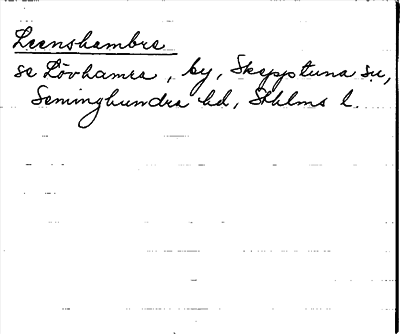 Leenshambra
se Lövhamra, by, Skepptuna sn,
Seminghundra hd, Sthlms l.